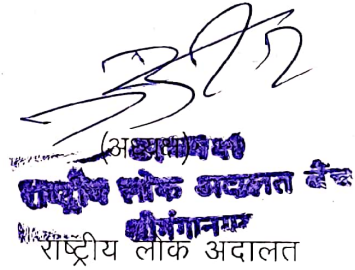 (अध्यक्ष)
राष्ट्रीय लोक अदालत बैंच
श्रीगंगानगर
राष्ट्रीय लोक अदालत